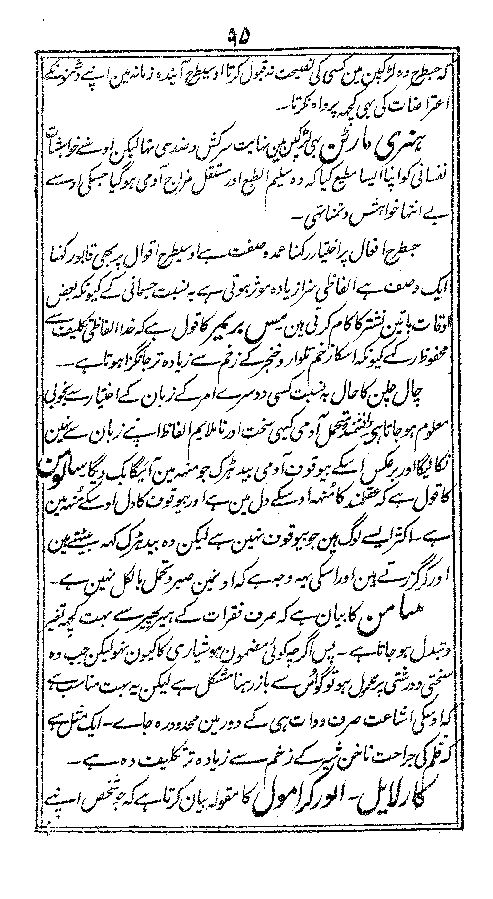 ۹۵
کہ جسطرح وہ لڑکپن مین کسی کی نصیحت نہ قبول کرتا اوسیطرح آیندہ زمانہ مین اپنے دشمنونکے
اعتراضات کی بہی کچہہ پرواہ نکرتا۔
ہنری مارٹن بہی لڑکپن مین نہایت سرکش و ضدی تہا لیکن اوسنے خواہشات
نفسانی کو اپنا ایسا مطیع کیا کہ وہ سلیم الطبع اور مستقل مزاج آدمی ہوگیا جسکی اوسے
بے انتہا خواہش و تمنا تہی۔
جسطرح افعال پر اختیار رکہنا عمدہ وصفت ہے اوسیطرح اقوال پر بہی قابو رکہنا
ایک وصف ہے الفاظی سزا زیادہ موثر ہوتی ہے بہ نسبت جسمانی کے کیونکہ بعض
اوقات باتین نشتر کا کام کرتی ہین مس بریمر کا قول ہے کہ خدا الفاظی تکلیف سے
محفوظ رکہے کیونکہ اسکا زخم تلوار و خنجر کے زخم سے زیادہ تر جانگزا ہوتا ہے۔
چال چلن کا حال بہ نسبت کسی دوسرے امر کے زبان کے اختیار سے بخوبی
معلوم ہو جاتا ہے عقلمند متحمل آدمی کبہی سخت اور ناملایم الفاظ اپنے زبان سے نہین
نکالیگا اور برعکس اسکے بیوقوف آدمی بیدہڑک جو منہہ مین آئیگا بک دیگا سالومن
کا قول ہے کہ عقلمند کا منہہ اوسکے دل مین ہے اور بیوقوف کا دل اوسکے منہہ مین
ہے۔ اکثر ایسے لوگ ہین جو بیوقوف نہین ہے لیکن وہ بیدہڑک کہہ بیٹہتے ہین
اور کر گزرتے ہین اور اسکی یہہ وجہ ہے کہ اونمین صبر و تحمل بالکل نہین ہے۔
کا بیان ہے کہ صرف فقرات کے ہیر پہیر سے بہت کچہہ تغیر
و تبدل ہو جاتا ہے۔ پس اگرچہ کوئی مضمون ہوشیاری کا کیون نہو لیکن جب وہ
سختی و درشتی پر محمول ہو تو گو اس سے باز رہنا مشکل ہے لیکن یہ بہت مناسب ہے
کہ اوسکی اشاعت صرف دوات ہی کے دور مین محدود رہ جاے۔ ایک مثل ہے
کہ قلم کی جراحت ناخن شیر کے زخم سے زیادہ تر تکلیف دہ ہے۔
کارلایل۔ الور کرامول کا مقولہ بیان کرتا ہے کہ جو شخص اپنے